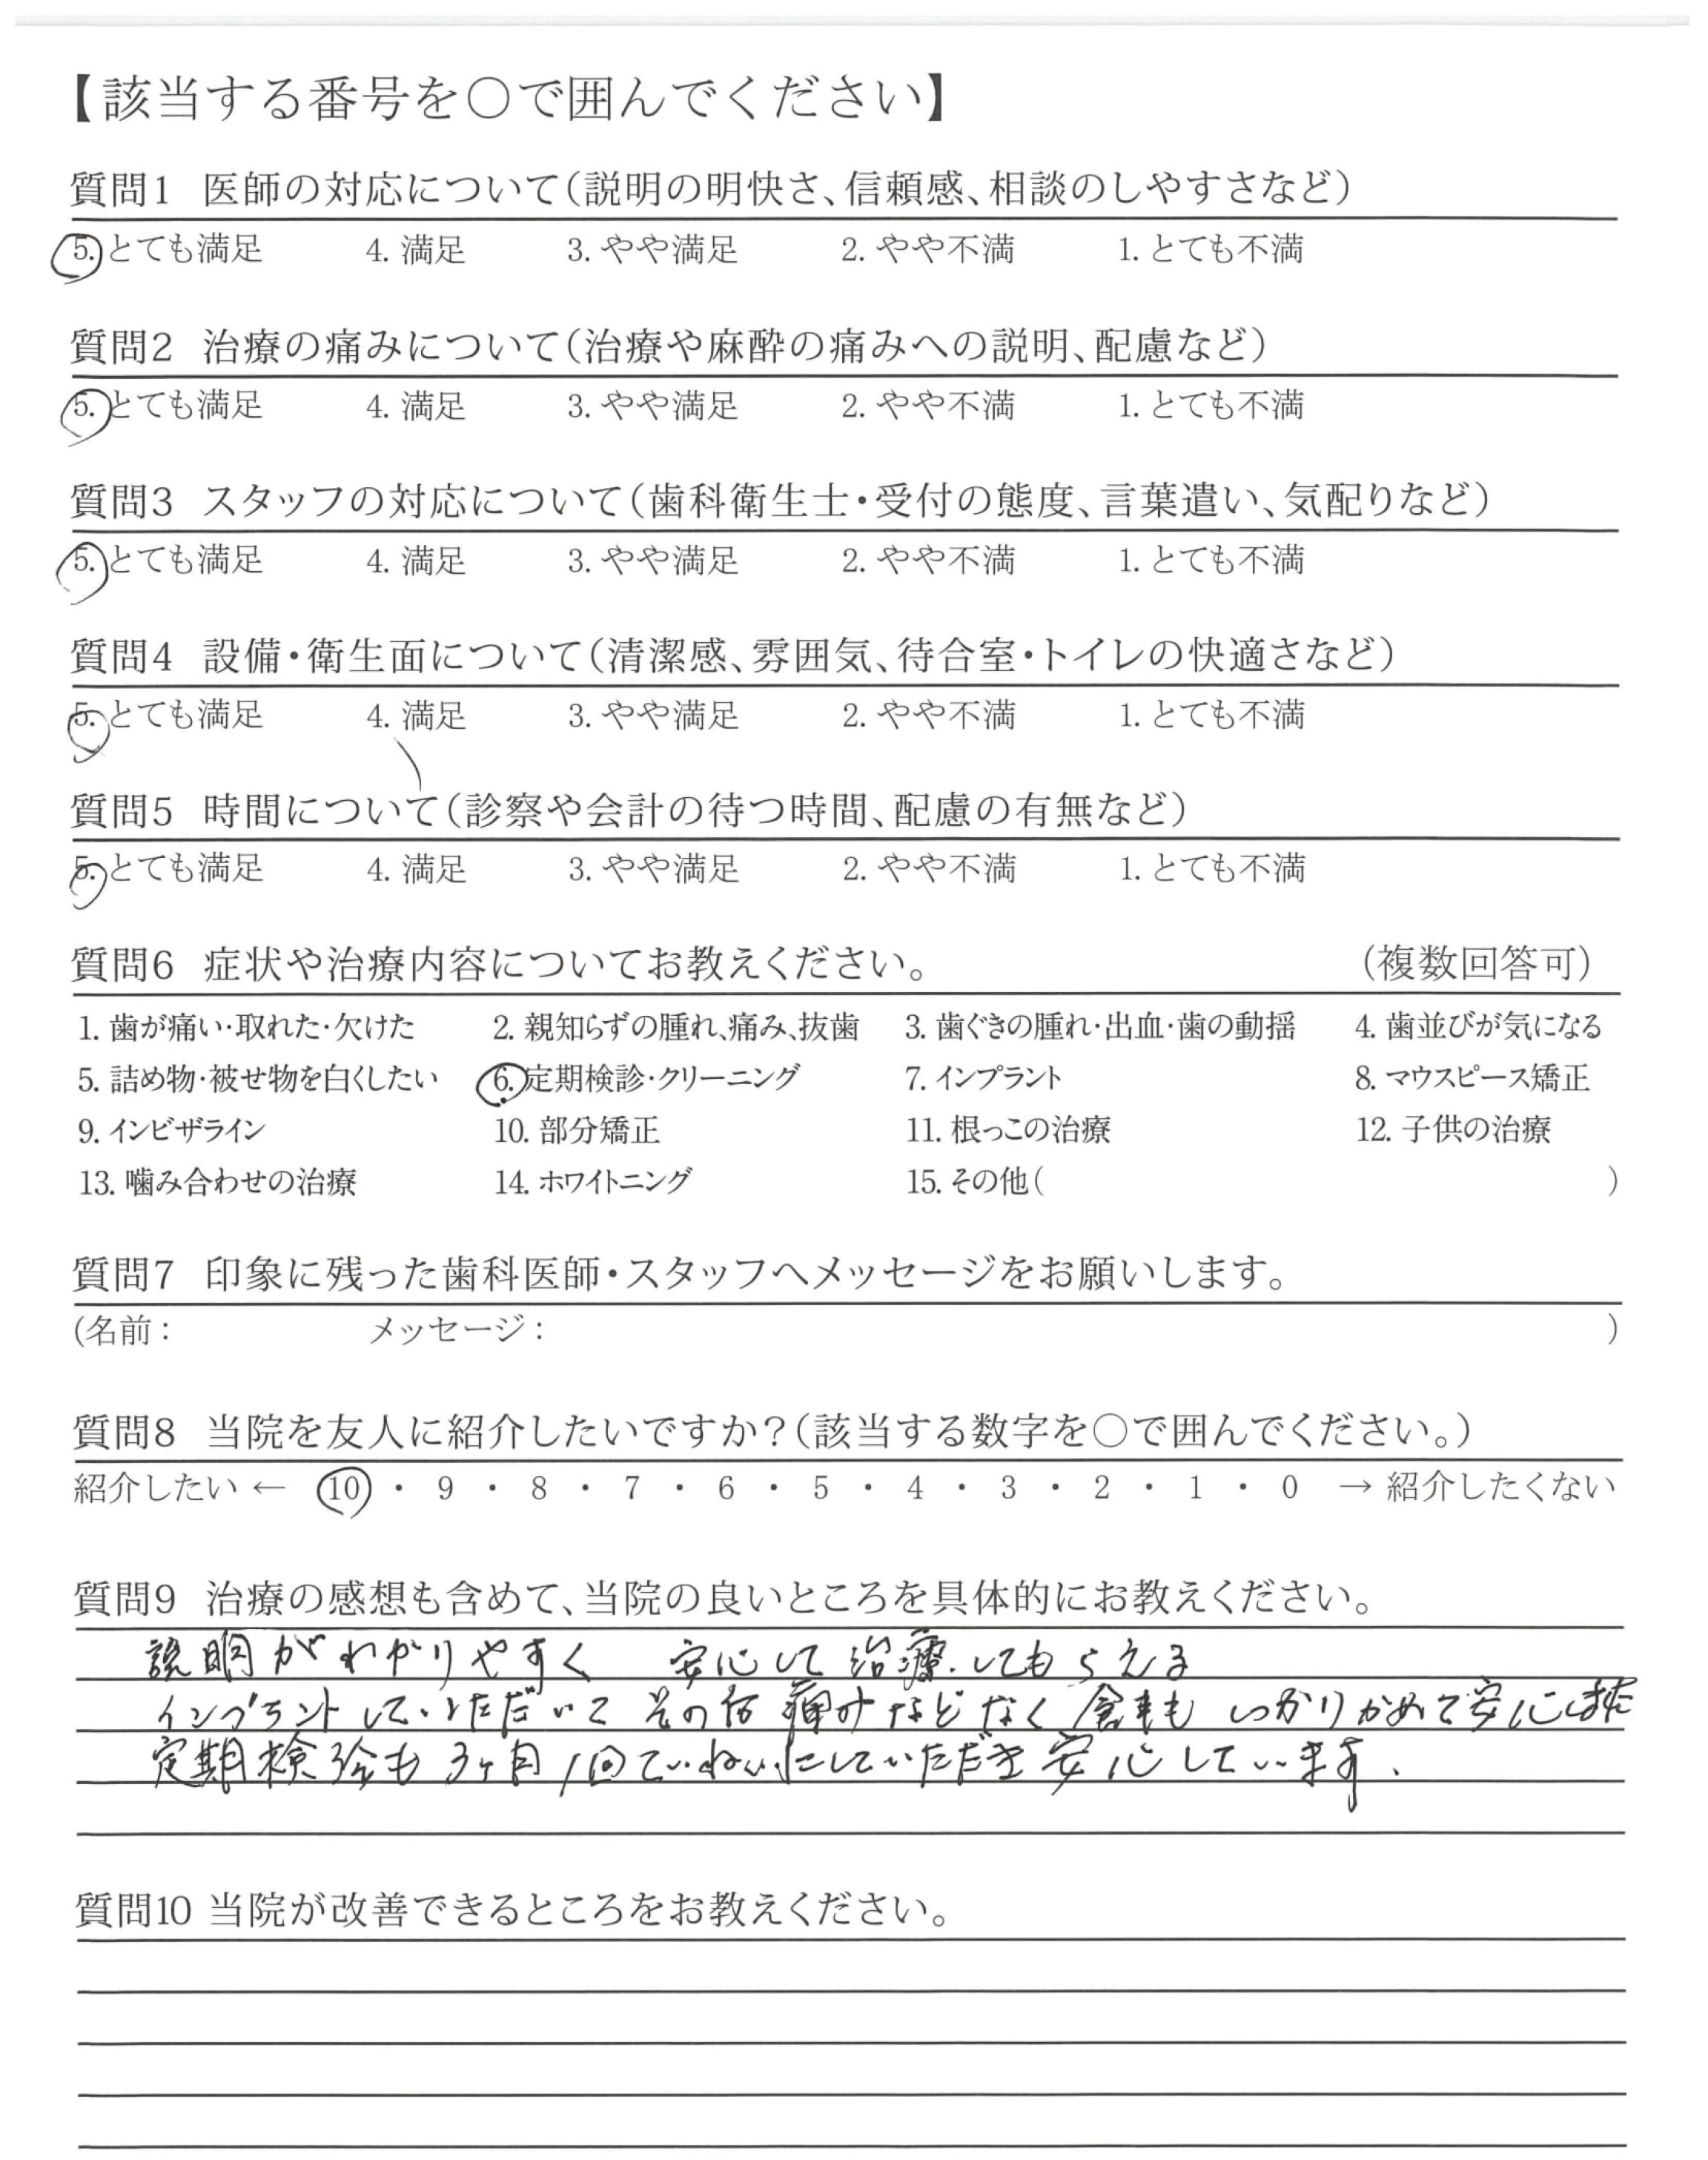 【該当する番号を○で囲んでください】
質問1 医師の対応について(説明の明快さ、信頼感、相談のしやすさなど)
5. とても満足 4. 満足 3. やや満足 2. やや不満 1. とても不満
質問2 治療の痛みについて(治療や麻酔の痛みへの説明、配慮など)
5. とても満足 4. 満足 3. やや満足 2. やや不満 1. とても不満
質問3 スタッフの対応について(歯科衛生士・受付の態度、言葉遣い、気配りなど)
5. とても満足 4. 満足 3. やや満足 2. やや不満 1. とても不満
質問4 設備・衛生面について(清潔感、雰囲気、待合室・トイレの快適さなど)
5. とても満足 4. 満足 3. やや満足 2. やや不満 1. とても不満
質問5 時間について(診察や会計の待つ時間、配慮の有無など)
5. とても満足 4. 満足 3. やや満足 2. やや不満 1. とても不満
質問6 症状や治療内容についてお教えください。 (複数回答可)
1. 歯が痛い・取れた・欠けた 2. 親知らずの腫れ、痛み、抜歯 3. 歯ぐきの腫れ・出血・歯の動揺 4. 歯並びが気になる
5. 詰め物・被せ物を白くしたい 6. 定期検診・クリーニング 7. インプラント 8. マウスピース矯正
9. インビザライン 10. 部分矯正 11. 根っこの治療 12. 子供の治療
13. 噛み合わせの治療 14. ホワイトニング 15. その他( )
質問7 印象に残った歯科医師・スタッフへメッセージをお願いします。
(名前： メッセージ： )
質問8 当院を友人に紹介したいですか？(該当する数字を○で囲んでください。)
紹介したい ← 10 ・ 9 ・ 8 ・ 7 ・ 6 ・ 5 ・ 4 ・ 3 ・ 2 ・ 1 ・ 0 → 紹介したくない
質問9 治療の感想も含めて、当院の良いところを具体的にお教えください。
説明がわかりやすく 安心して治療してもらえる
インプラントしていただいて その後 痛みなどなく 食事も しっかりかめて安心 また
定期検診も 3ヶ月1回ていねいにしていただき安心しています.
質問10 当院が改善できるところをお教えください。